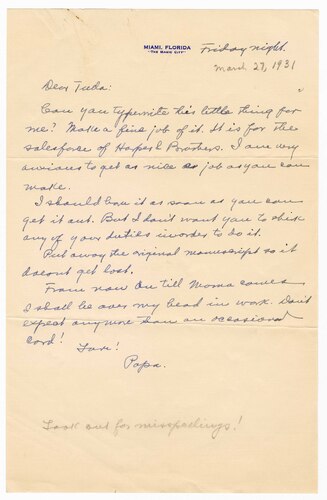 MIAMI, FLORIDA
"THE MAGIC CITY"
Friday night.
March 27, 1931
Dear Tecla:
Can you typewrite this little thing for
me? Make a fine job of it. It is for the
salesforce of Harper & Brothers. I am very
anxious to get as nice a job as you can
make.
I should have it as soon as you can
get it out. But I don't want you to shirk
any of your duties in order to do it.
Put away the original manuscript so it
doesnt get lost.
From now on till Moma comes
I shall be over my head in work. Don't
expect any more than an occasional
card!
Love!
Papa.
Look out for misspellings!